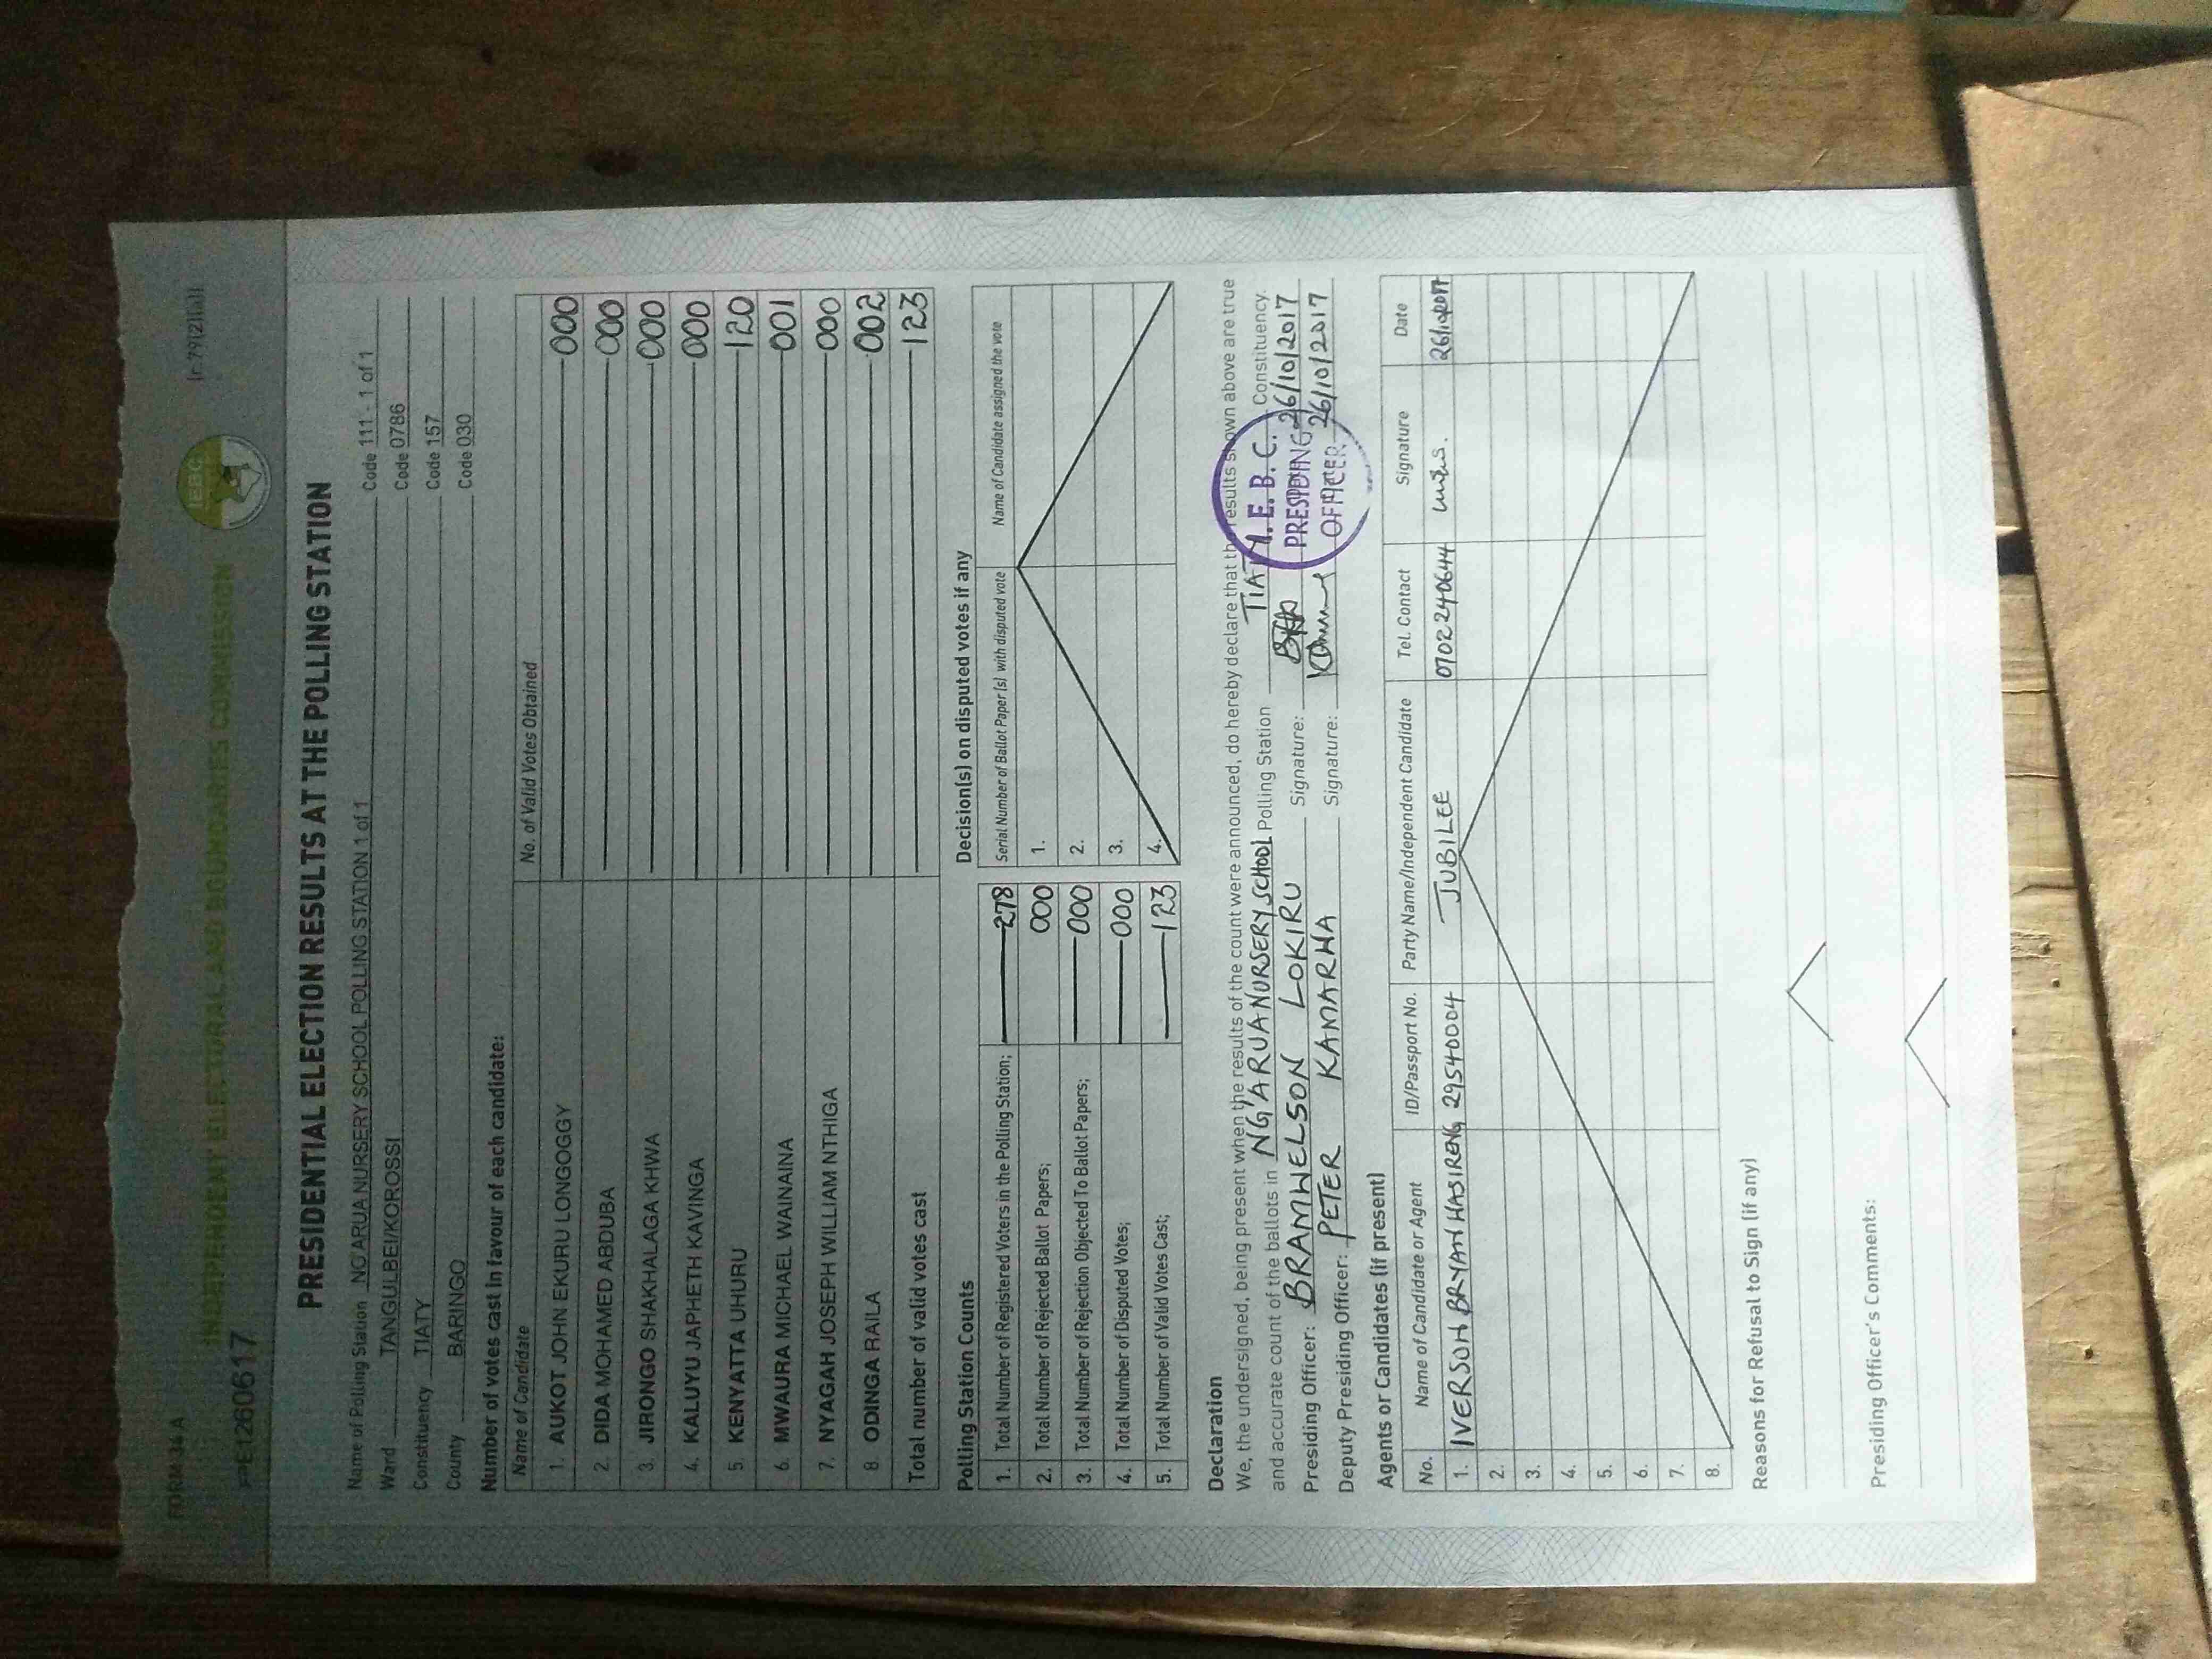 FORM 34 A (r.79(2)(a))
INDEPENDENT ELECTORAL AND BOUNDARIES COMMISSION
IEBC
PE1260617
PRESIDENTIAL ELECTION RESULTS AT THE POLLING STATION
Name of Polling Station NG'ARUA NURSERY SCHOOL POLLING STATION 1 of 1 Code 111 - 1 of 1
Ward TANGULBEI/KOROSSI Code 0786
Constituency TIATY Code 157
County BARINGO Code 030
Number of votes cast in favour of each candidate:
Name of Candidate No. of Valid Votes Obtained
1. AUKOT JOHN EKURU LONGOGGY 000
2. DIDA MOHAMED ABDUBA 000
3. JIRONGO SHAKHALAGA KHWA 000
4. KALUYU JAPHETH KAVINGA 000
5. KENYATTA UHURU 120
6. MWAURA MICHAEL WAINAINA 001
7. NYAGAH JOSEPH WILLIAM NTHIGA 000
8 ODINGA RAILA 002
Total number of valid votes cast 123
Polling Station Counts
1. Total Number of Registered Voters in the Polling Station; 278
2. Total Number of Rejected Ballot Papers; 000
3. Total Number of Rejection Objected To Ballot Papers; 000
4. Total Number of Disputed Votes; 000
5. Total Number of Valid Votes Cast; 123
Decision(s) on disputed votes if any
Serial Number of Ballot Paper(s) with disputed vote Name of Candidate assigned the vote
1.
2.
3.
4.
Declaration
We, the undersigned, being present when the results of the count were announced, do hereby declare that the results shown above are true
and accurate count of the ballots in NG'ARUA NURSERY SCHOOL Polling Station TIATY Constituency.
Presiding Officer: BRAMWELSON LOKIRU Signature: 26/10/2017
Deputy Presiding Officer: PETER KAMARHA Signature: 26/10/2017
I.E.B.C.
PRESIDING
OFFICER
Agents or Candidates (if present)
No. Name of Candidate or Agent ID/Passport No. Party Name/Independent Candidate Tel. Contact Signature Date
1. IVERSON BRYAN HASIRENG 29540004 JUBILEE 0702240644 26/10/2017
2.
3.
4.
5.
6.
7.
8.
Reasons for Refusal to Sign (if any)
Presiding Officer's Comments: